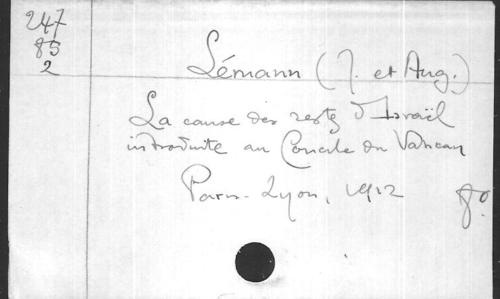 247
85
2
Lémann (J. et Aug.)
La cause des restes d'Israël
introduite au Concile du Vatican
Paris-Lyon, 1912
8º